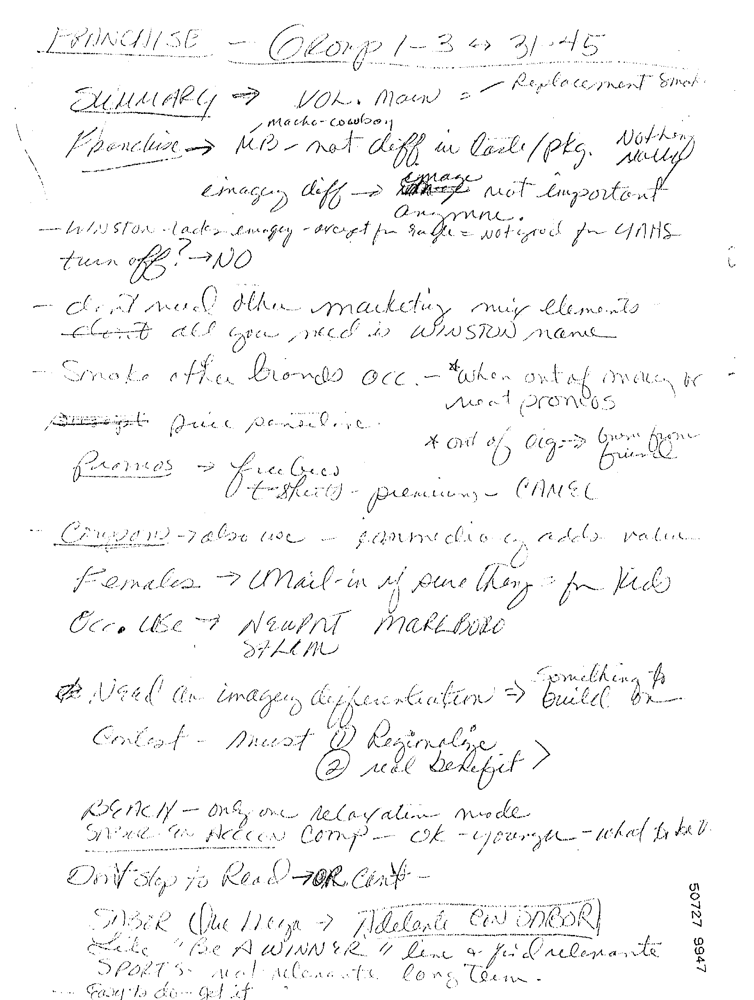 FRANCHISE — Group 1-3 ↔ 31-45
SUMMARY ⇒ VOL. Main = - Replacement Smok.
macho-cowboy
Franchise → MB - not diff in taste/pkg. Nothing really
imagery diff → image not important
anymore.
- WINSTON - lacks imagery - except for = not good for YAHS
turn off? → NO
- don't need other marketing mix elements
dont all you need is WINSTON name
- Smoke other brands occ. - *when out of money or
meat promos
price sensitive.
* out of cig ⇒ bum from friend
Promos → freebies
t-shirts - premiums - CAMEL
- Coupons → also use - immediacy adds value
Females → Mail-in if sure thing - for kids
Occ. USE → NEWPRT MARLBORO
SALEM
* Need an imagery differentiation ⇒ Something to build on
Contest - must ① Regionalize
② real benefit >
BEACH - only one relaxation mode
SABOR EN ACCION Comp - OK - younger - what to be
Don't stop to Read → OR Can't -
SABOR Que Llega → Adelante CON SABOR
Like "Be A WINNER" line & find relevante
SPORTS - not relevante long term.
- Easy to do - get it
50727 9947